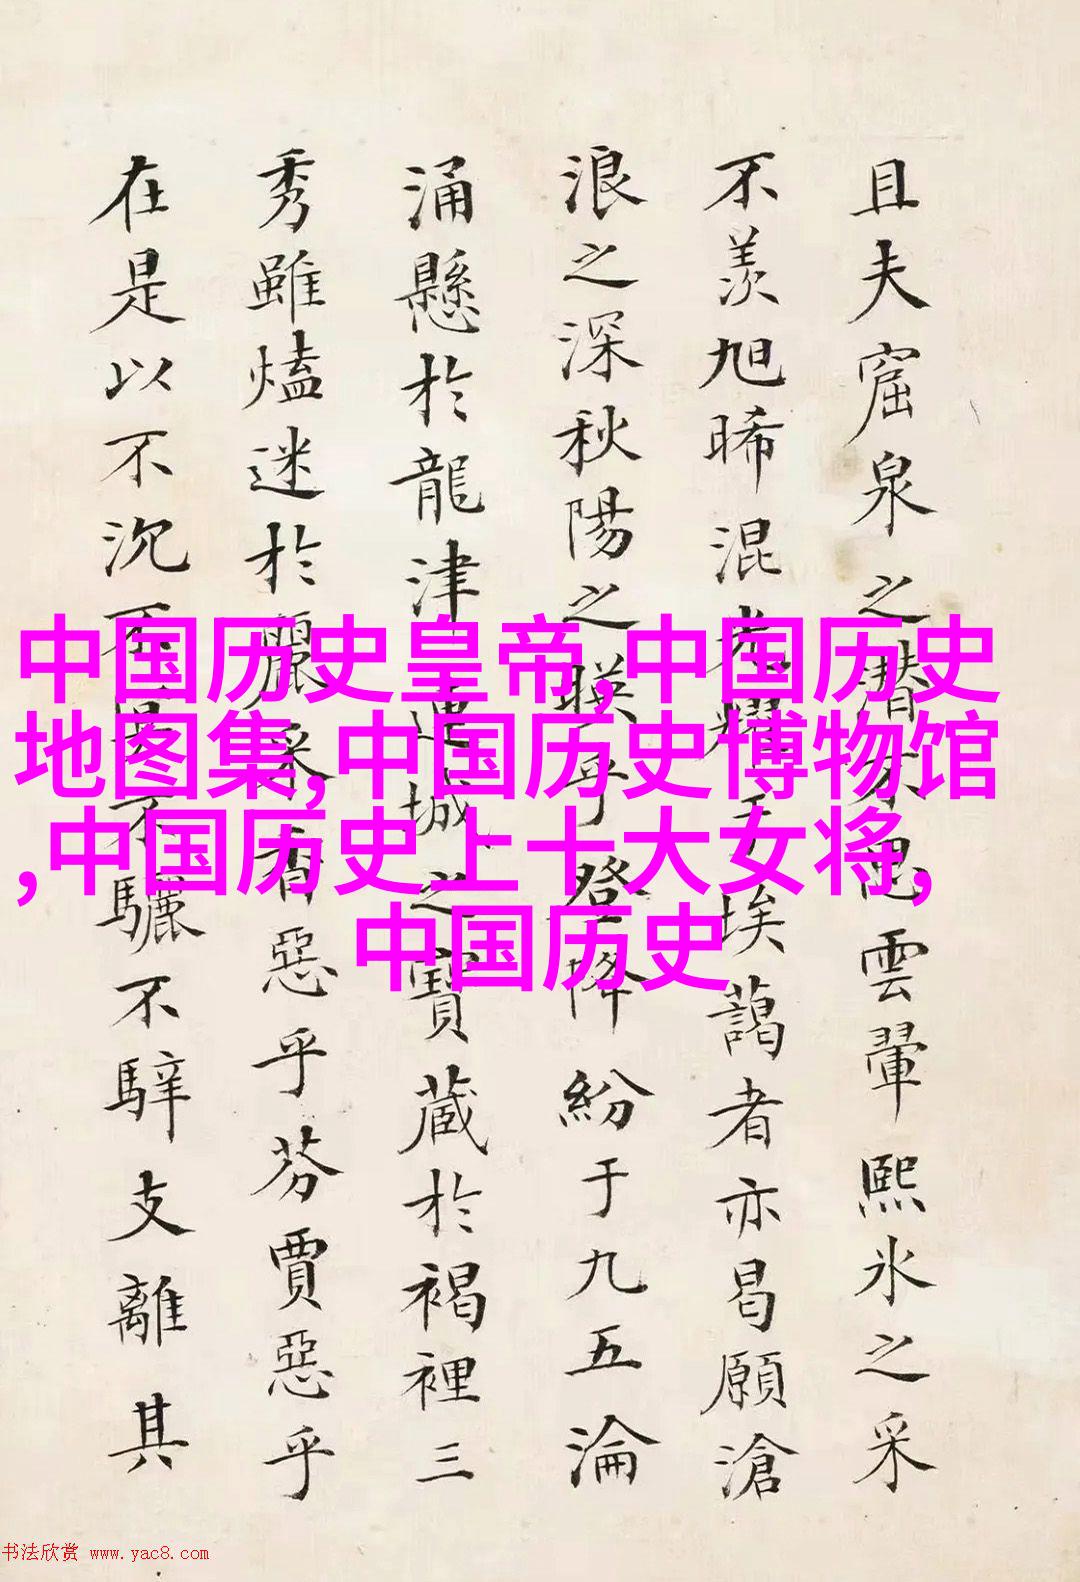 且夫窟泉之潜昆雲翬熙氷之采
不羨旭晞混光耀于埃藹者亦曷願滄
浪之深秋陽之暎乎登降紛于九五淪
涌懸於龍津連城之寶蔵於褐裡三
秀雖熆迷於麗采香惡乎芬賈惡乎
在是以不沉不不驪不騂支離其
中国历史皇帝,中国历史
地图集,中国历史博物馆
,中国历史上十大女将,
中国历史
书法欣赏 www.yac8.com